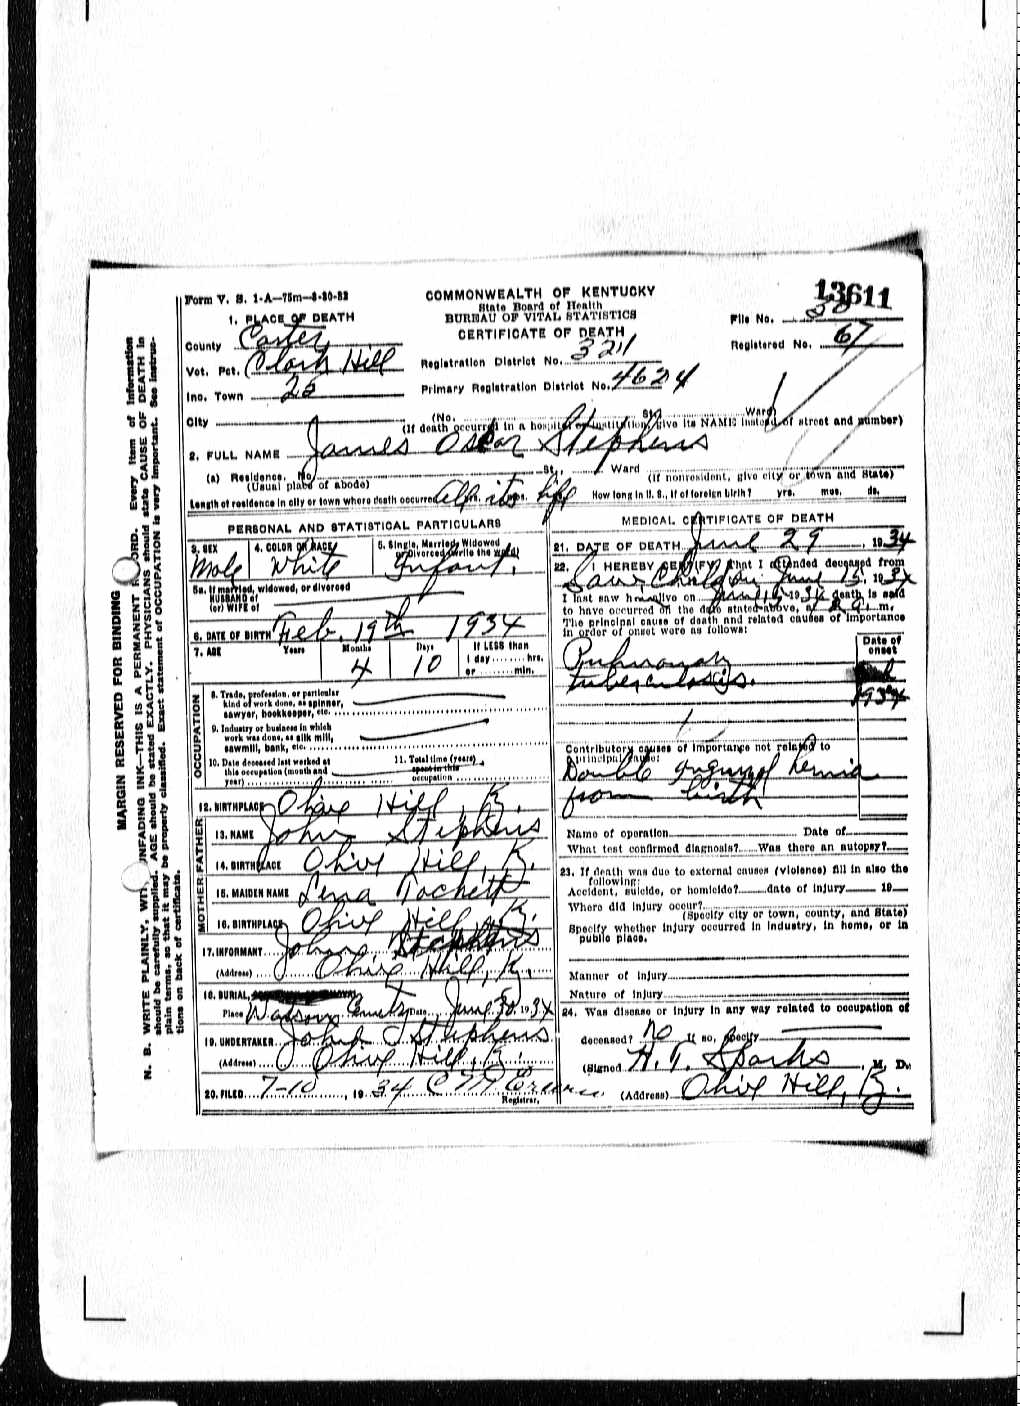 MARGIN RESERVED FOR BINDING
N. B. WRITE PLAINLY, WITH UNFADING INK—THIS IS A PERMANENT RECORD. Every item of information
should be carefully supplied. AGE should be stated EXACTLY. PHYSICIANS should state CAUSE OF DEATH in
plain terms, so that it may be properly classified. Exact statement of OCCUPATION is very important. See instruc-
tions on back of certificate.
Form V. S. 1-A—75m—8-30-32
COMMONWEALTH OF KENTUCKY
State Board of Health
BUREAU OF VITAL STATISTICS
CERTIFICATE OF DEATH
13611
File No.
Registered No. 67
1. PLACE OF DEATH
County Carter
Vot. Pct. Clark Hill
Inc. Town 25
Registration District No. 3211
Primary Registration District No. 4624
City (No. St., Ward)
(If death occurred in a hospital or institution, give its NAME instead of street and number)
2. FULL NAME James Oscar Stephens
(a) Residence. No. St., Ward
(Usual place of abode) (If nonresident, give city or town and State)
Length of residence in city or town where death occurred All its life How long in U. S., if of foreign birth? yrs. mos. ds.
PERSONAL AND STATISTICAL PARTICULARS
3. SEX Male
4. COLOR OR RACE White
5. Single, Married, Widowed or Divorced (write the word) Infant.
5a. If married, widowed, or divorced
HUSBAND of
(or) WIFE of
6. DATE OF BIRTH Feb. 19th 1934
7. AGE Years Months 4 Days 10 If LESS than
1 day ........ hrs.
or ........ min.
OCCUPATION
8. Trade, profession, or particular
kind of work done, as spinner,
sawyer, bookkeeper, etc.
9. Industry or business in which
work was done, as silk mill,
sawmill, bank, etc.
10. Date deceased last worked at
this occupation (month and
year)
11. Total time (years)
spent in this
occupation
12. BIRTHPLACE Olive Hill, Ky.
FATHER
13. NAME John Stephens
14. BIRTHPLACE Olive Hill, Ky.
MOTHER
15. MAIDEN NAME Lena Tackett
16. BIRTHPLACE Olive Hill, Ky.
17. INFORMANT John Stephens
(Address) Olive Hill, Ky.
18. BURIAL,
Place Watson Cemetry Date June 30, 1934
19. UNDERTAKER John Stephens
(Address) Olive Hill, Ky.
20. FILED 7-10, 1934
Registrar.
MEDICAL CERTIFICATE OF DEATH
21. DATE OF DEATH June 29, 1934
22. I HEREBY CERTIFY, That I attended deceased from
Saw Child on June 15, 1934
I last saw h alive on June 15 1934 death is said
to have occurred on the date stated above, at m.
The principal cause of death and related causes of importance
in order of onset were as follows:
Date of
onset
Pulmonary
tuberculosis.
1934
Contributory causes of importance not related to
principal cause:
Double Inguinal hernia
from birth
Name of operation Date of
What test confirmed diagnosis? Was there an autopsy?
23. If death was due to external causes (violence) fill in also the
following:
Accident, suicide, or homicide? date of injury 19
Where did injury occur?
(Specify city or town, county, and State)
Specify whether injury occurred in industry, in home, or in
public place.
Manner of injury
Nature of injury
24. Was disease or injury in any way related to occupation of
deceased? No If so, specify
(Signed H. T. Sparks, M. D.
(Address) Olive Hill, Ky.